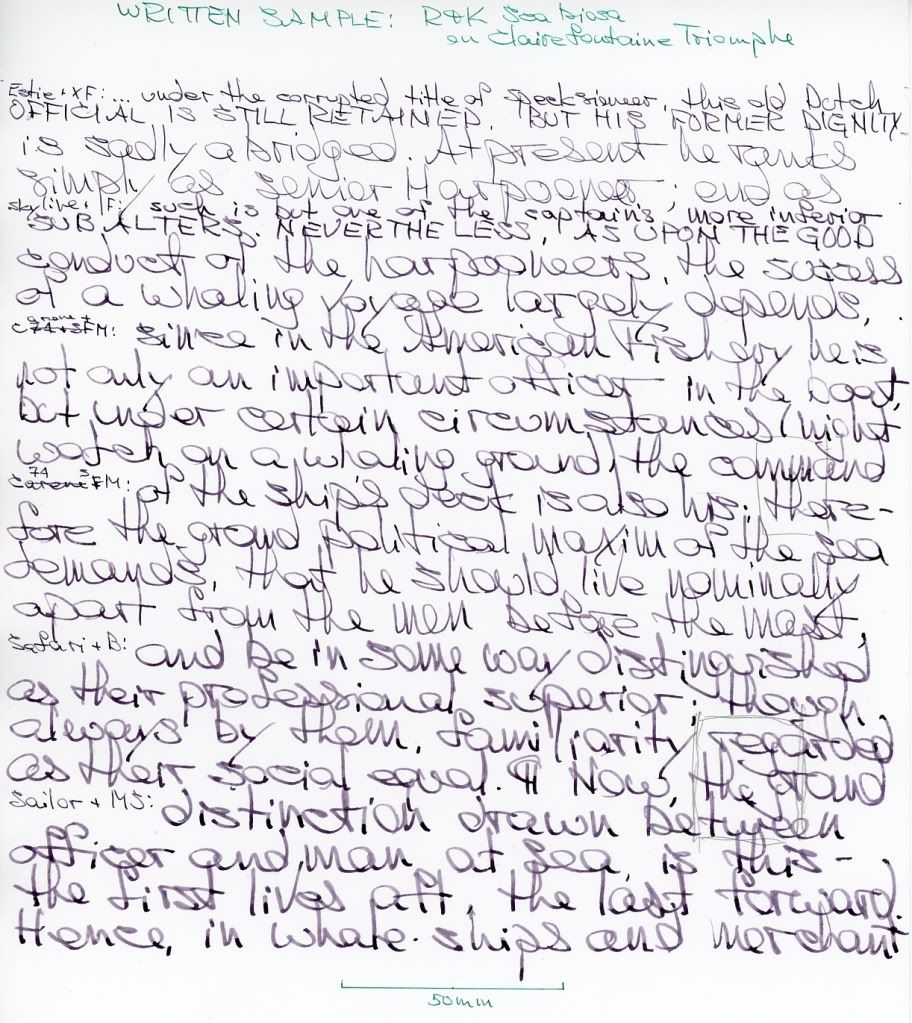 WRITTEN SAMPLE: R&K Scabiosa
on Clairefontaine Triomphe
Estie + XF: ... under the corrupted title of Specksioneer, this old Dutch
OFFICIAL IS STILL RETAINED, BUT HIS FORMER DIGNITY
is sadly abridged. At present he ranks
simply as senior Harpooner; and as
skyline + F: such is but one of the captain's more inferior
SUBALTERS. NEVERTHELESS, AS UPON THE GOOD
conduct of the harpooneers the success
of a whaling voyage largely depends,
since in the American Fishery he is
not only an important officer in the boat,
but under certain circumstances (night
watch on a whaling ground) the command
of the ship's deck is also his; there-
fore the grand political maxim of the sea
demands, that he should live nominally
apart from the men before the mast,
Safari + B: and be in some way distinguished
as their professional superior; though
always by them, familiarity regarded
as their social equal. ¶ Now, the grand
Sailor + MS: distinction drawn between
officer and man at sea, is this-
the first lives aft, the last forward.
Hence, in whale-ships and merchant
50mm